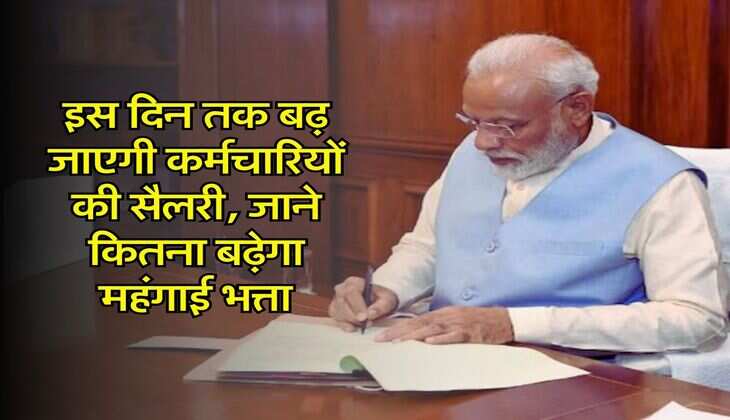 इस दिन तक बढ़
जाएगी कर्मचारियों
की सैलरी, जाने
कितना बढ़ेगा
महंगाई भत्ता